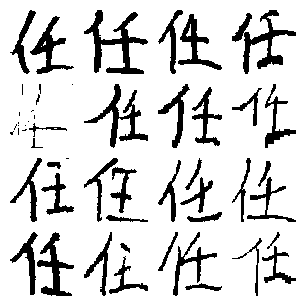 任任任任
任任任任
任任任任
任任任任